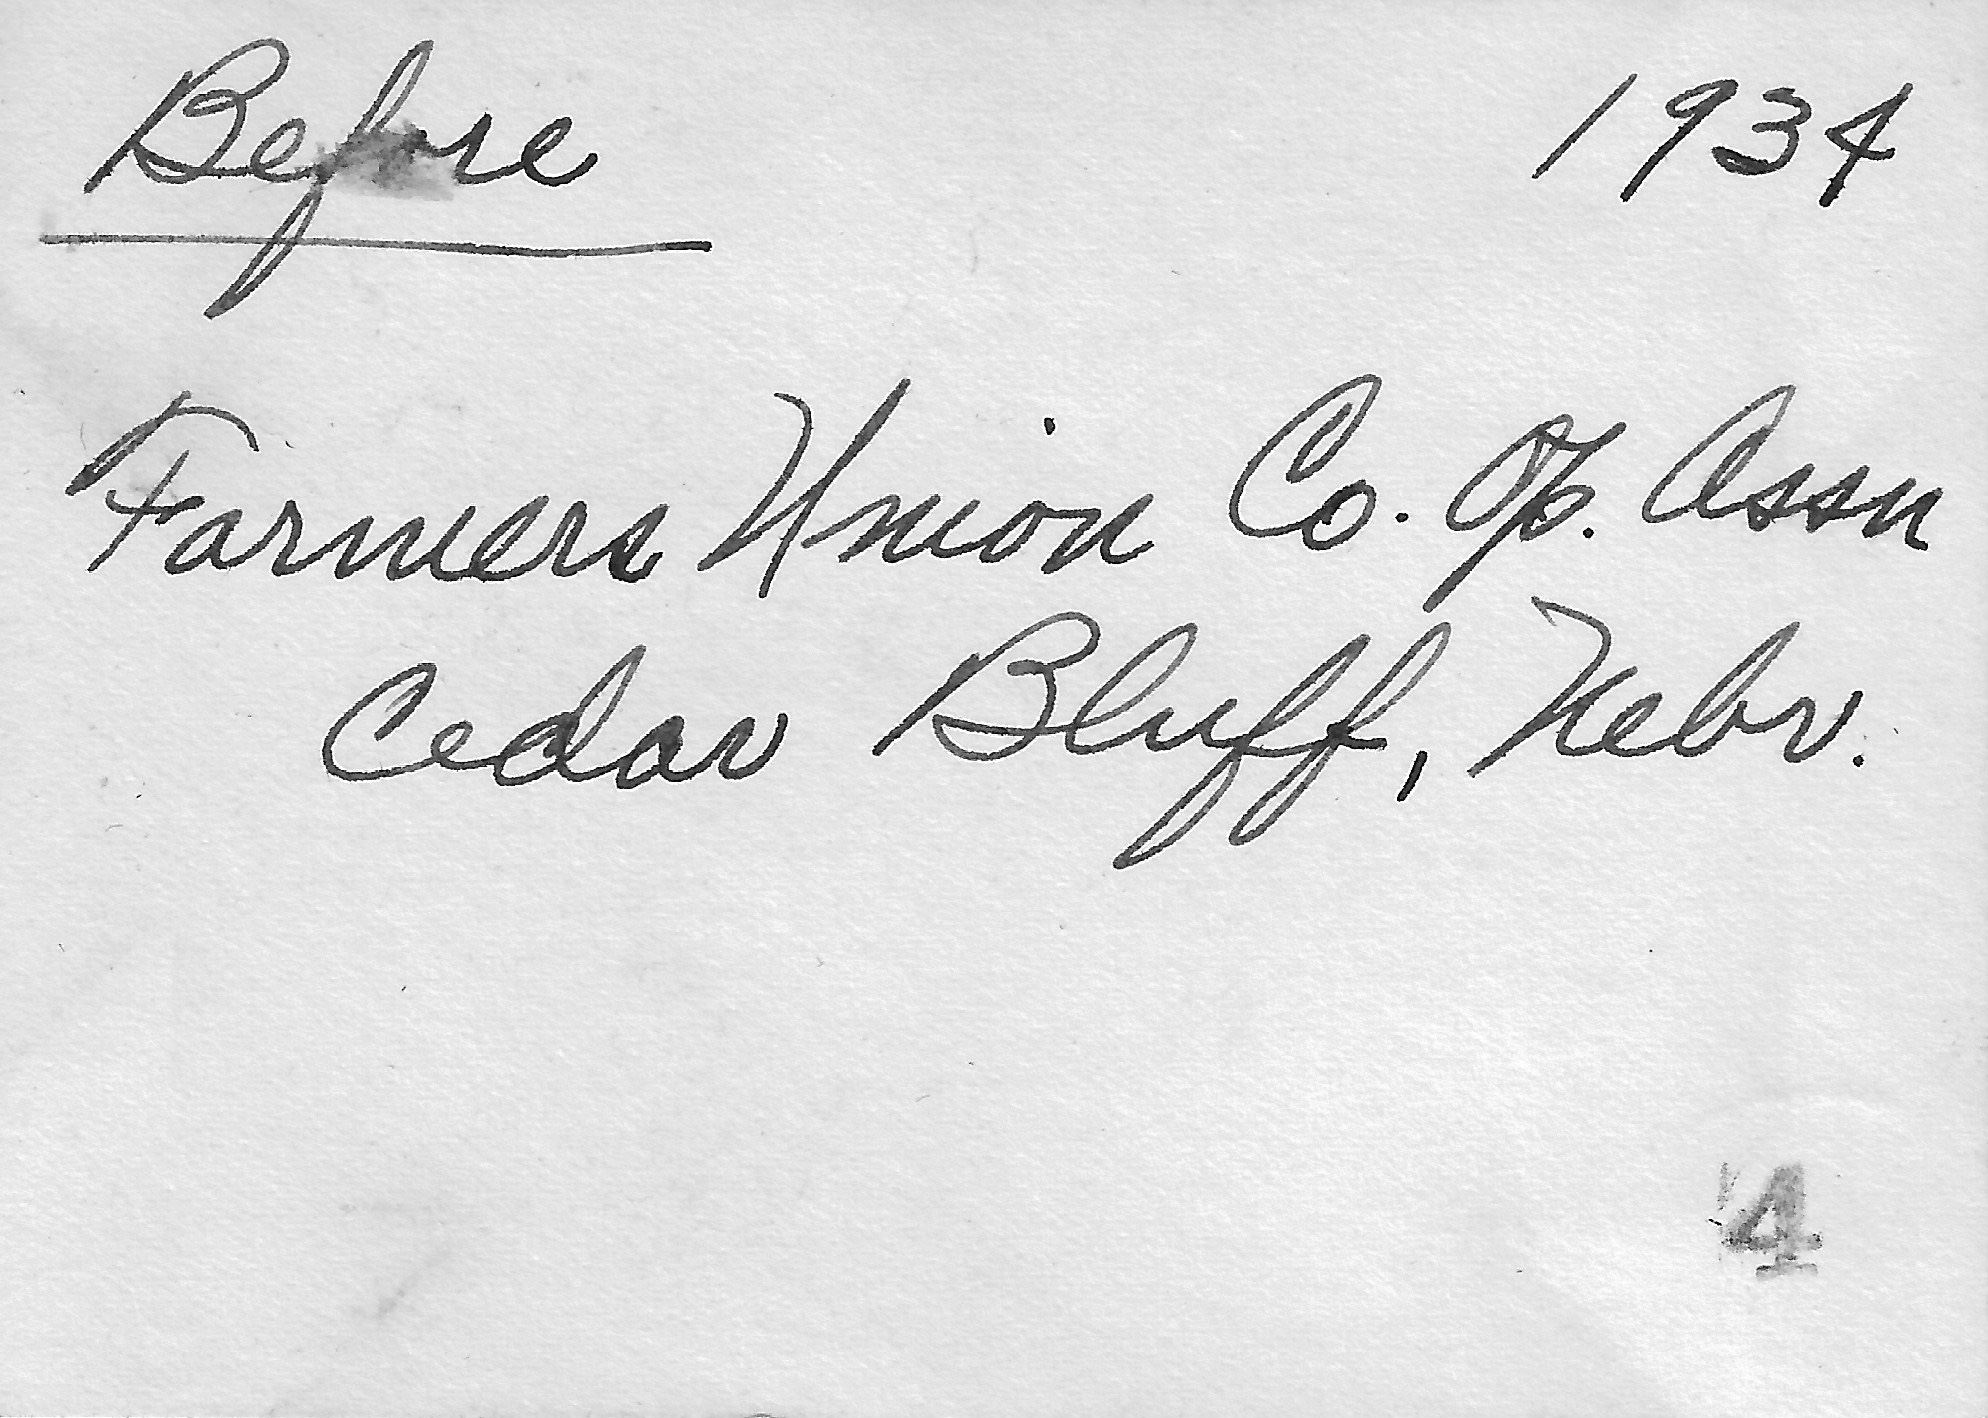 Before 1934
Farmers Union Co. Op. Assn
Cedar Bluff, Nebr.
4